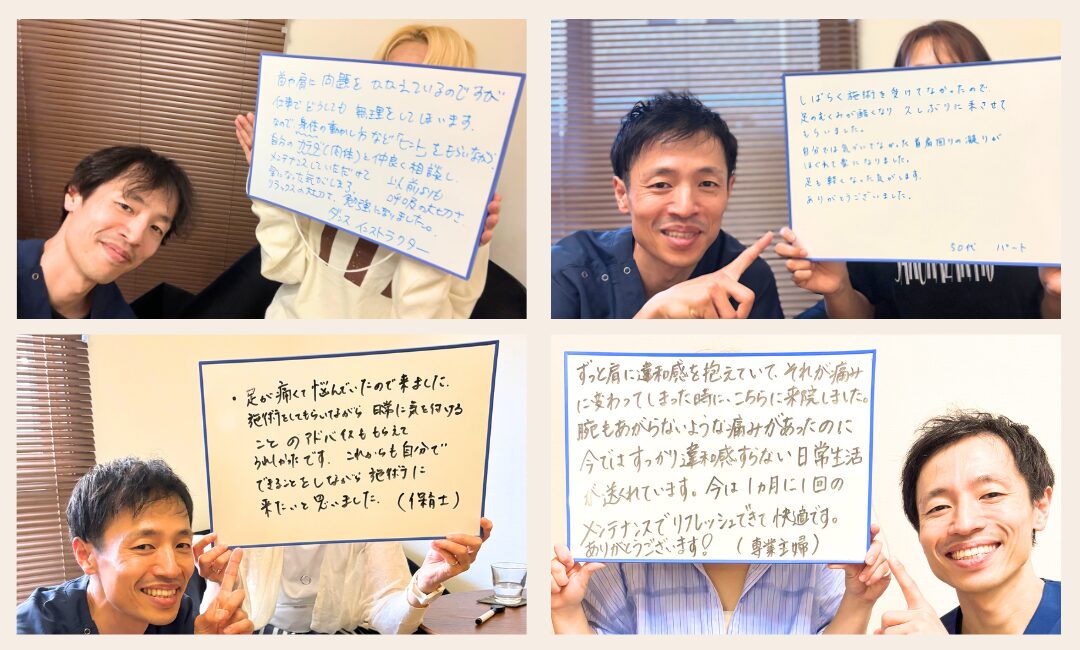 首や肩に問題をかかえているのですが
仕事でどうしても無理をしてしまいます。
なので、身体の動かし方など「ヒント」をもらいながら、
自分のカラダ(肉体)と仲良く相談し、
メンテナンスしていただけて 以前よりも
楽になった気がします。 呼吸の大切さ、
リラックスの大切さ、勉強になりました。
ダンスインストラクター
しばらく施術を受けてなかったので、
足のむくみが酷くなり 久しぶりに来させて
もらいました。
自分では気がいてなかった首肩回りの凝りが
ほぐれて楽になりました。
足も軽くなった気がします。
ありがとうございました。
50代 パート
・足が痛くて悩んでいたので来ました。
施術をしてもらいながら 日常に気を付ける
こと のアドバイスももらえて
うれしかったです。 これからも自分で
できることをしながら 施術に
来たいと思いました。 (保育士)
ずっと肩に違和感を抱えていて、それが痛み
に変わってしまった時に、こちらに来院しました。
腕もあがらないような痛みがあったのに
今ではすっかり違和感すらない日常生活
が送れています。今は1ヵ月に1回の
メンテナンスでリフレッシュできて快適です。
ありがとうございます! (専業主婦)